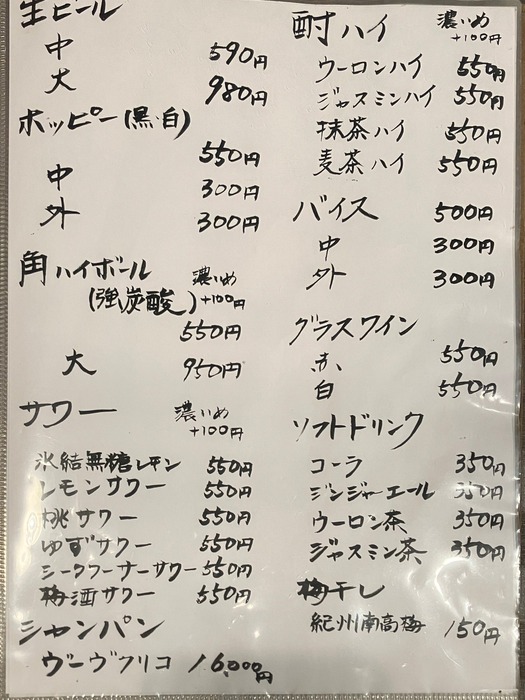 生ビール
中 590円
大 980円
ホッピー(黒・白)
550円
中 300円
外 300円
角ハイボール 濃いめ
(強炭酸) +100円
550円
大 950円
サワー 濃いめ
+100円
氷結無糖レモン 550円
レモンサワー 550円
桃サワー 550円
ゆずサワー 550円
シークワーサーサワー 550円
梅酒サワー 550円
シャンパン
ヴーヴクリコ 16,000円
酎ハイ 濃いめ
+100円
ウーロンハイ 550円
ジャスミンハイ 550円
抹茶ハイ 550円
麦茶ハイ 550円
バイス 500円
中 300円
外 300円
グラスワイン
赤 550円
白 550円
ソフトドリンク
コーラ 350円
ジンジャーエール 350円
ウーロン茶 350円
ジャスミン茶 350円
梅干し
紀州南高梅 150円